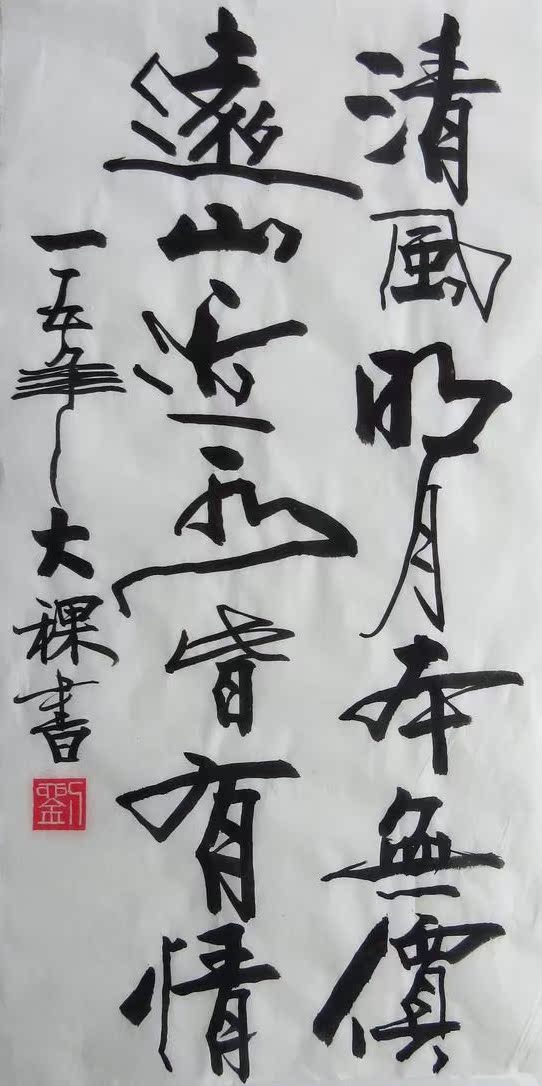 清風明月本無價
遠山近水皆有情
一五年大稞書
劉